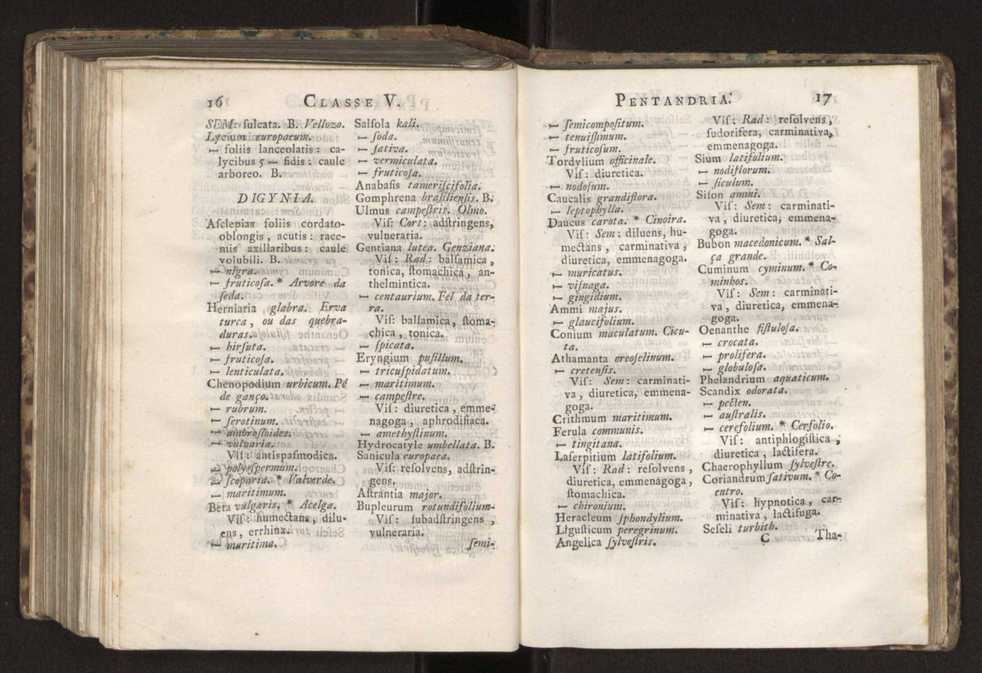 16 CLASSE V.
SEM: ſulcata. B. Vellozo.
Lycium europaeum.
— foliis lanceolatis: ca-
lycibus 5 — fidis: caule
arboreo. B.
DIGYNIA.
Aſclepias foliis cordato-
oblongis, acutis: race-
mis axillaribus: caule
volubili. B.
— nigra.
— fruticoſa. * Arvore da
ſeda.
Herniaria glabra. Erva
turca, ou das quebra-
duras.
— hirſuta.
— fruticoſa.
— lenticulata.
Chenopodium urbicum. Pé
de ganço.
— rubrum.
— ſerotinum.
— ambroſioides.
— vulvaria.
Viſ: antispaſmodica.
— polyeſpermum.
— ſcoparia. * Valverde.
— maritimum.
Beta vulgaris. * Acelga.
Viſ: humectans, dilu-
ens, errhina.
— maritima.
Salſola kali.
— ſoda.
— ſativa.
— vermiculata.
— fruticoſa.
Anabaſis tameriſcifolia.
Gomphrena braſilienſis. B.
Ulmus campeſtris. Olmo.
Viſ: Cort: adſtringens,
vulneraria.
Gentiana lutea. Genziana.
Viſ: Rad: balſamica,
tonica, ſtomachica, an-
thelmintica.
— centaurium. Fel da ter-
ra.
Viſ: balſamica, ſtoma-
chica, tonica.
— ſpicata.
Eryngium puſillum.
— tricuſpidatum.
— maritimum.
— campeſtre.
Viſ: diuretica, emme-
nagoga, aphrodiſiaca.
— amethyſtinum.
Hydrocatyle umbellata. B.
Sanicula europaea.
Viſ: reſolvens, adſtrin-
gens.
Aſtrantia major.
Bupleurum rotundifolium.
Viſ: ſubadſtringens,
vulneraria.
ſemi-
PENTANDRIA. 17
— ſemicompoſitum.
— tenuiſſimum.
— fruticoſum.
Tordylium officinale.
Viſ: diuretica.
— nodoſum.
Caucalis grandiflora.
— leptophylla.
Daucus carota. * Cinoira.
Viſ: Sem: diluens, hu-
mectans, carminativa,
diuretica, emmenagoga.
— muricatus.
— viſnaga.
— gingidium.
Ammi majus.
— glaucifolium.
Conium maculatum. Cicu-
ta.
Athamanta oreoſelinum.
— cretenſis.
Viſ: Sem: carminati-
va, diuretica, emmena-
goga.
Crithmum maritimum.
Ferula communis.
— tingitana.
Laſerpitium latifolium.
Viſ: Rad: reſolvens,
diuretica, emmenagoga,
ſtomachica.
— chironium.
Heracleum ſphondylium.
Liguſticum peregrinum.
Angelica ſylveſtris.
Viſ: Rad: reſolvens,
ſudorifera, carminativa,
emmenagoga.
Sium latifolium.
— nodiflorum.
— ſiculum.
Siſon ammi.
Viſ: Sem: carminati-
va, diuretica, emmena-
goga.
Bubon macedonicum. * Sal-
ça grande.
Cuminum cyminum. * Co-
minhos.
Viſ: Sem: carminati-
va, diuretica, emmena-
goga.
Oenanthe fiſtuloſa.
— crocata.
— prolifera.
— globuloſa.
Phelandrium aquaticum.
Scandix odorata.
— pecten.
— auſtralis.
— cerefolium. * Cerfolio.
Viſ: antiphlogiſtica,
diuretica, lactifera.
Chaerophyllum ſylveſtre.
Coriandrum ſativum. * Co-
entro.
Viſ: hypnotica, car-
minativa, lactifuga.
Seſeli turbith.
C Tha-